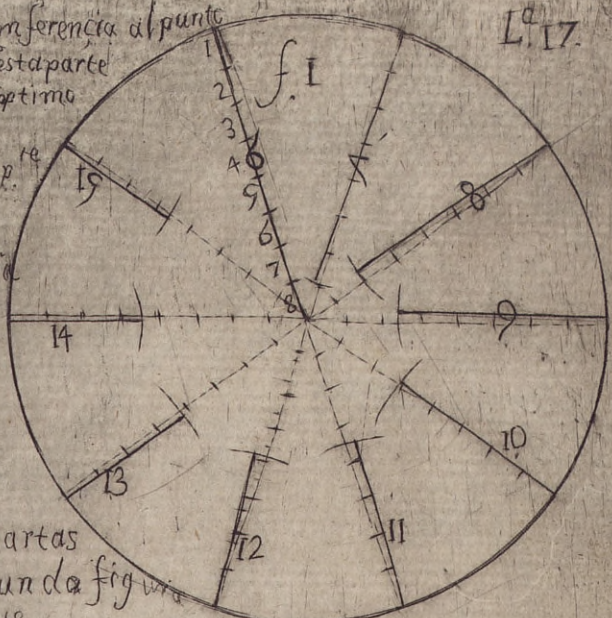 mferençia al punto
estaparte
optimo
L.ª 17.
f. I
1
2
3
4
6
5
6
7
8
7
8
9
10
11
12
13
14
15
artas
unda figura